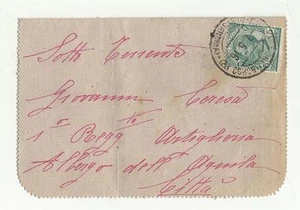 Sotto Tenente
Giovanni Ceresa
1° Regg.to Artiglieria
Albergo dell' Aquila
Città